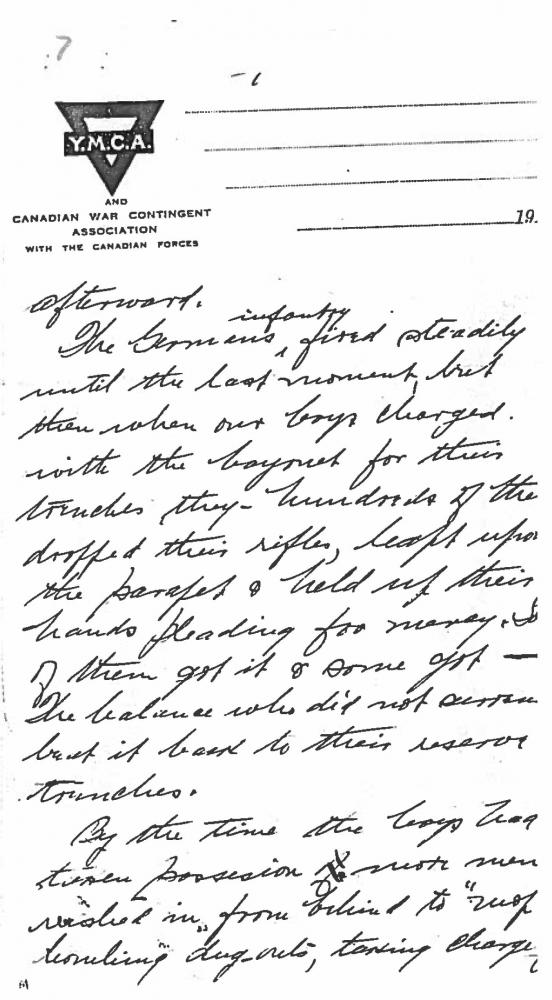 7
Y.M.C.A.
AND
CANADIAN WAR CONTINGENT
ASSOCIATION
WITH THE CANADIAN FORCES
19
afterward.
infantry
The Germans, fired steadily
until the last moment, but
then when our boys charged
with the bayonet for their
trenches they - hundreds of them
dropped their rifles, leapt upon
the parapet & held up their
hands pleading for mercy. S
of them got it & some got —
The balance who did not
beat it back to their reserve
trenches.
By the time the boys had
taken possesion more men
rushed in from behind to "mop
bombing dug-outs, taking charge